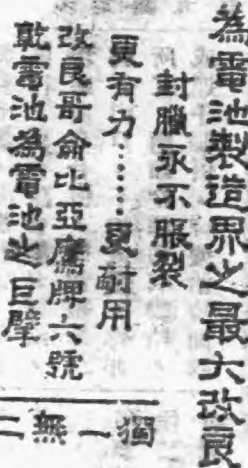 為電池製造界之最大改良
封臘永不脹裂
更有力……更耐用
改良哥侖比亞鷹牌六號
乾電池為電池之巨擘
獨一無二